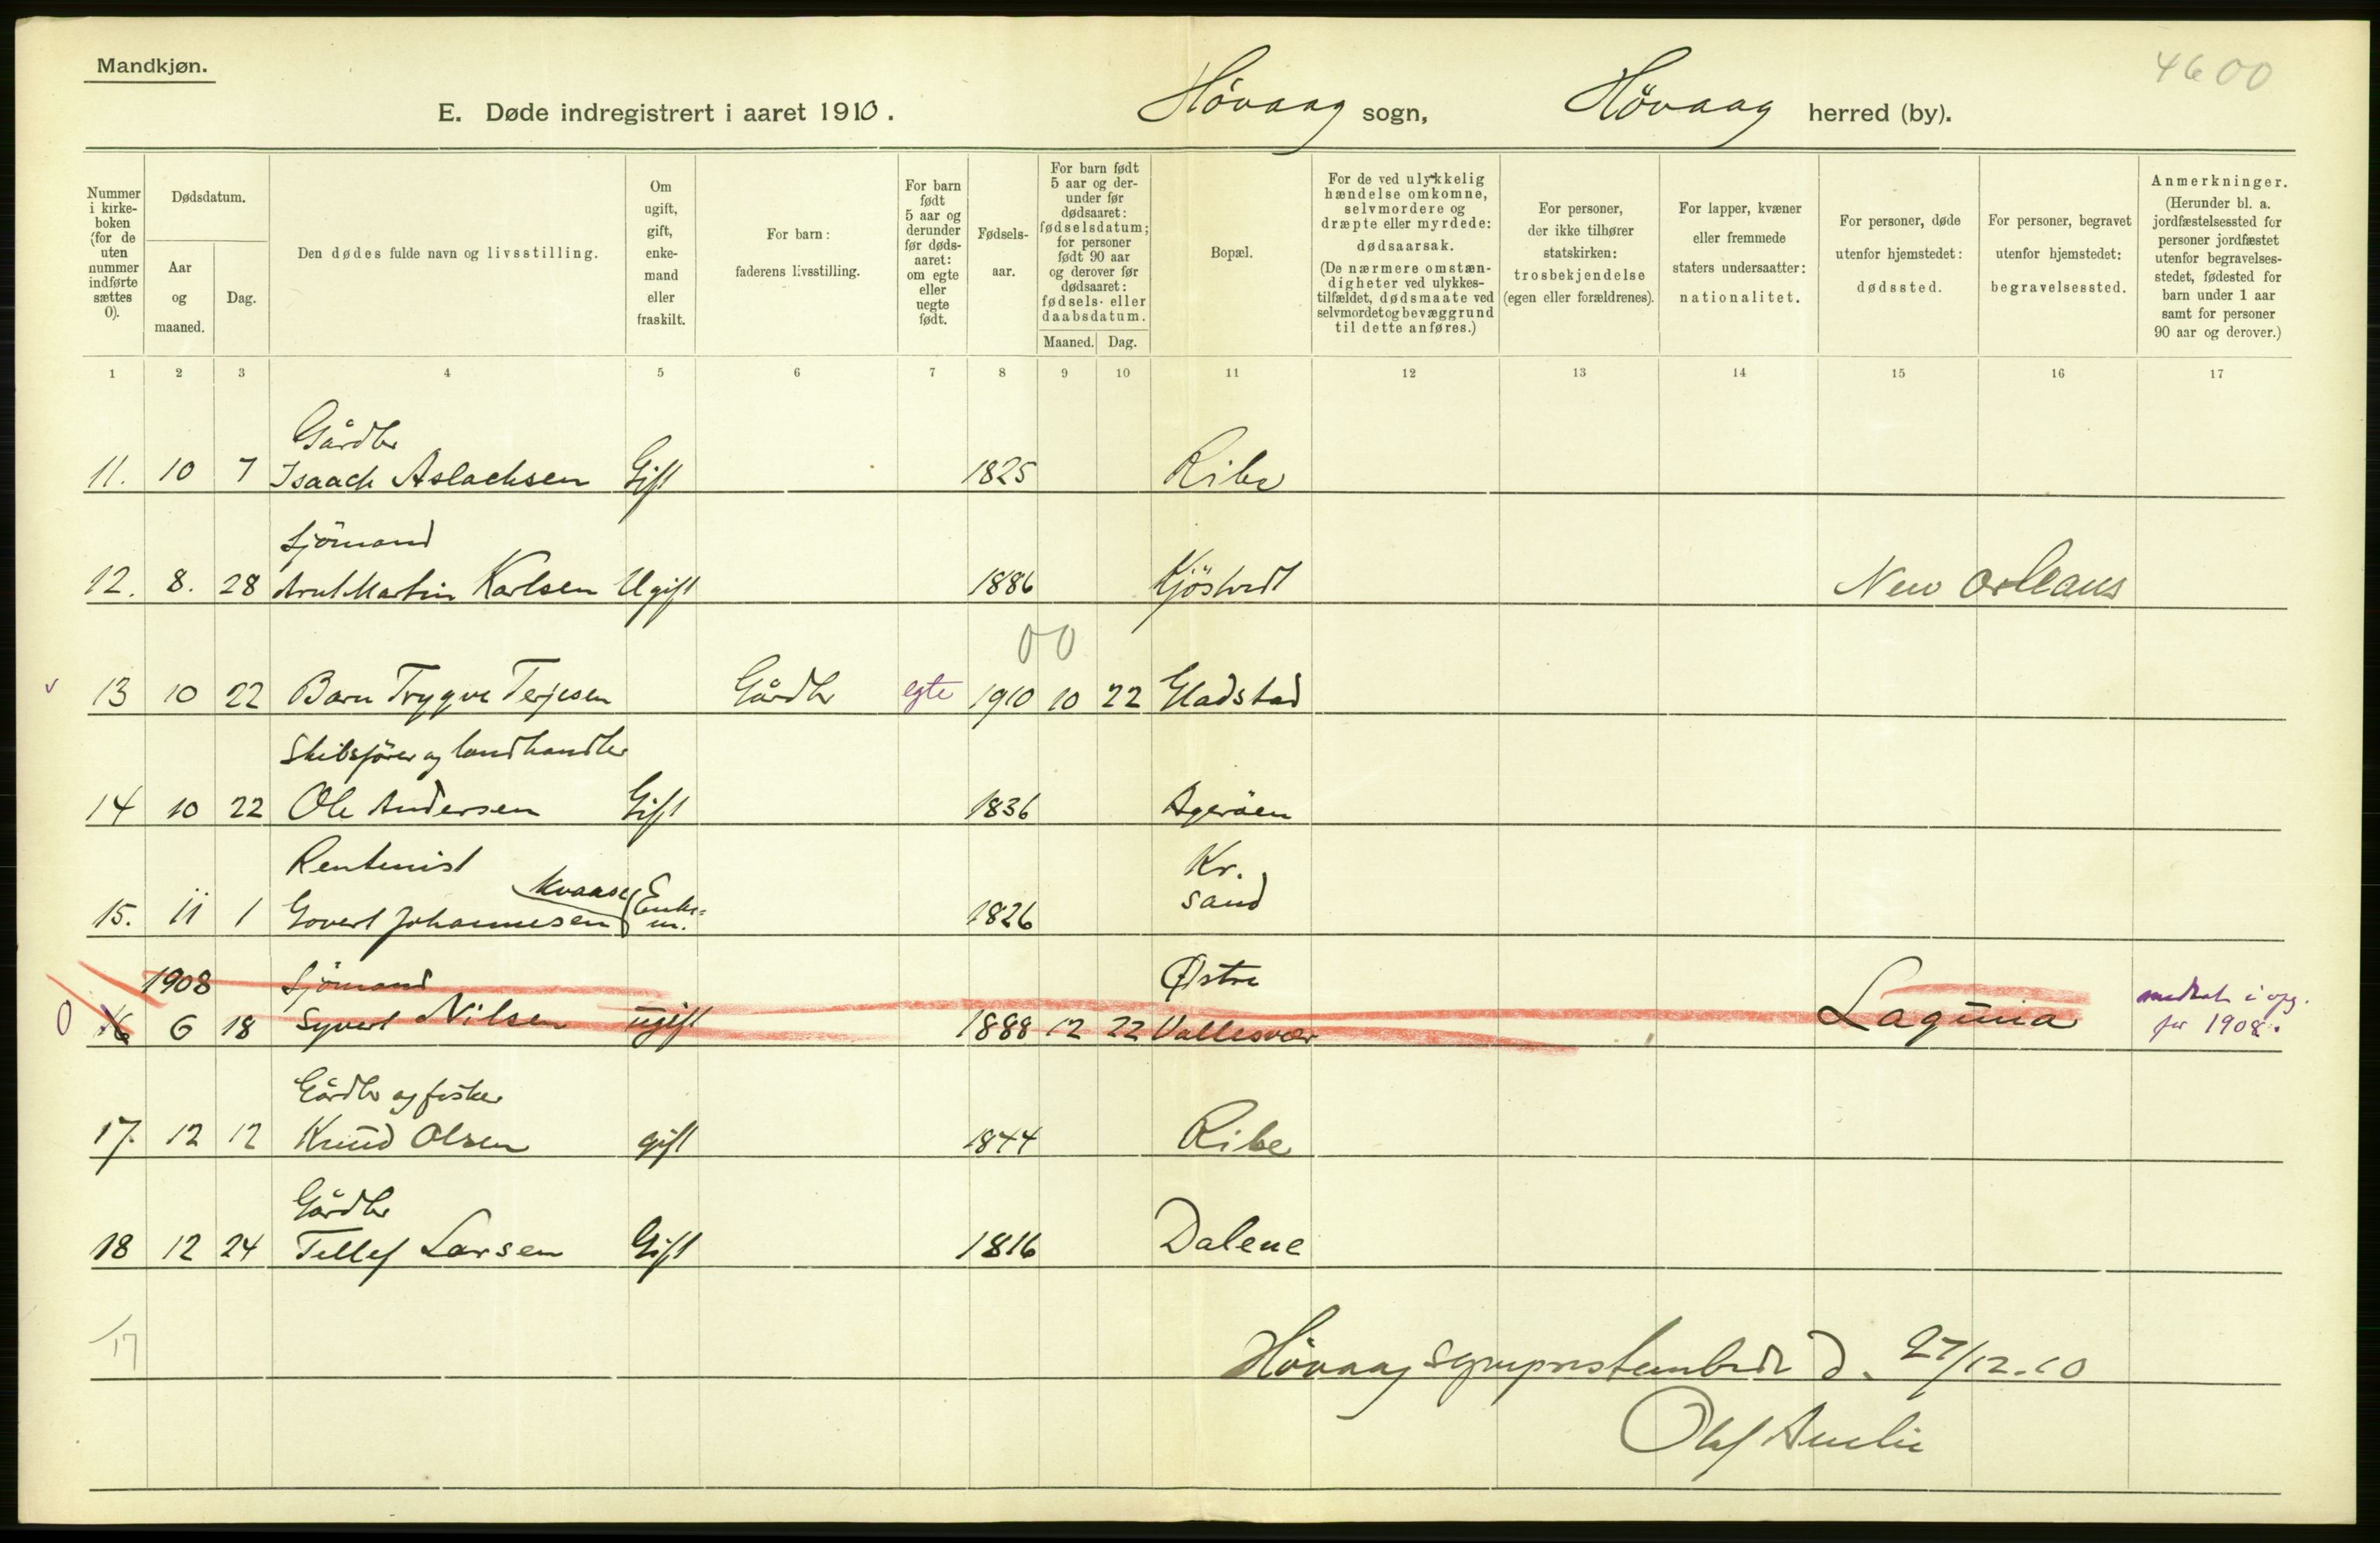 Mandkjøn.
4600
E. Døde indregistrert i aaret 1910. Høvaag sogn, Høvaag herred (by).
Nummer i kirkeboken (for de uten nummer indførte sættes 0).
Dødsdatum.
Aar og maaned.
Dag.
Den dødes fulde navn og livsstilling.
Om ugift, gift, enkemand eller fraskilt.
For barn: faderens livsstilling.
For barn født 5 aar og derunder før dødsaaret: om egte eller uegte født.
Fødselsaar.
For barn født 5 aar og derunder før dødsaaret: fødselsdatum; for personer født 90 aar og derover før dødsaaret: fødsels- eller daabsdatum.
Maaned. Dag.
Bopæl.
For de ved ulykkelig hændelse omkomne, selvmordere og dræpte eller myrdede: dødsaarsak. (De nærmere omstændigheter ved ulykkestilfældet, dødsmaate ved selvmordet og bevæggrund til dette anføres.)
For personer, der ikke tilhører statskirken: trosbekjendelse (egen eller forældrenes).
For lapper, kvæner eller fremmede staters undersaatter: nationalitet.
For personer, døde utenfor hjemstedet: dødssted.
For personer, begravet utenfor hjemstedet: begravelsessted.
Anmerkninger. (Herunder bl. a. jordfæstelsessted for personer jordfæstet utenfor begravelsesstedet, fødested for barn under 1 aar samt for personer 90 aar og derover.)
1 2 3 4 5 6 7 8 9 10 11 12 13 14 15 16 17
Gårdbr
11. 10 7 Isaach Aslachsen Gift 1825 Ribe
Sjömand
12. 8. 28 Arnt Martin Karlsen Ugift 1886 Kjöstvedt New Orleans
00
v 13 10 22 Barn Trygve Terjesen Gårdbr egte 1910 10 22 Gladstad
Skibsförer og landhandler
14 10 22 Ole Andersen Gift 1836 Ageröen
Rentenist Kr.
15. 11 1 Govert Johannesen Kvaase Enkem. 1826 sand
1908 Sjömand Østre
0 16 6 18 Syvert Nilsen ugift 1888 12 22 Vallesvær Laguna medtat i opg. for 1908.
Gårdbr og fisker
17. 12 12 Knud Olsen gift 1844 Ribe
Gårdbr
18 12 24 Tellef Larsen Gift 1816 Dalene
17
Høvaag sogneprestembede d. 27/12-10
Olaf